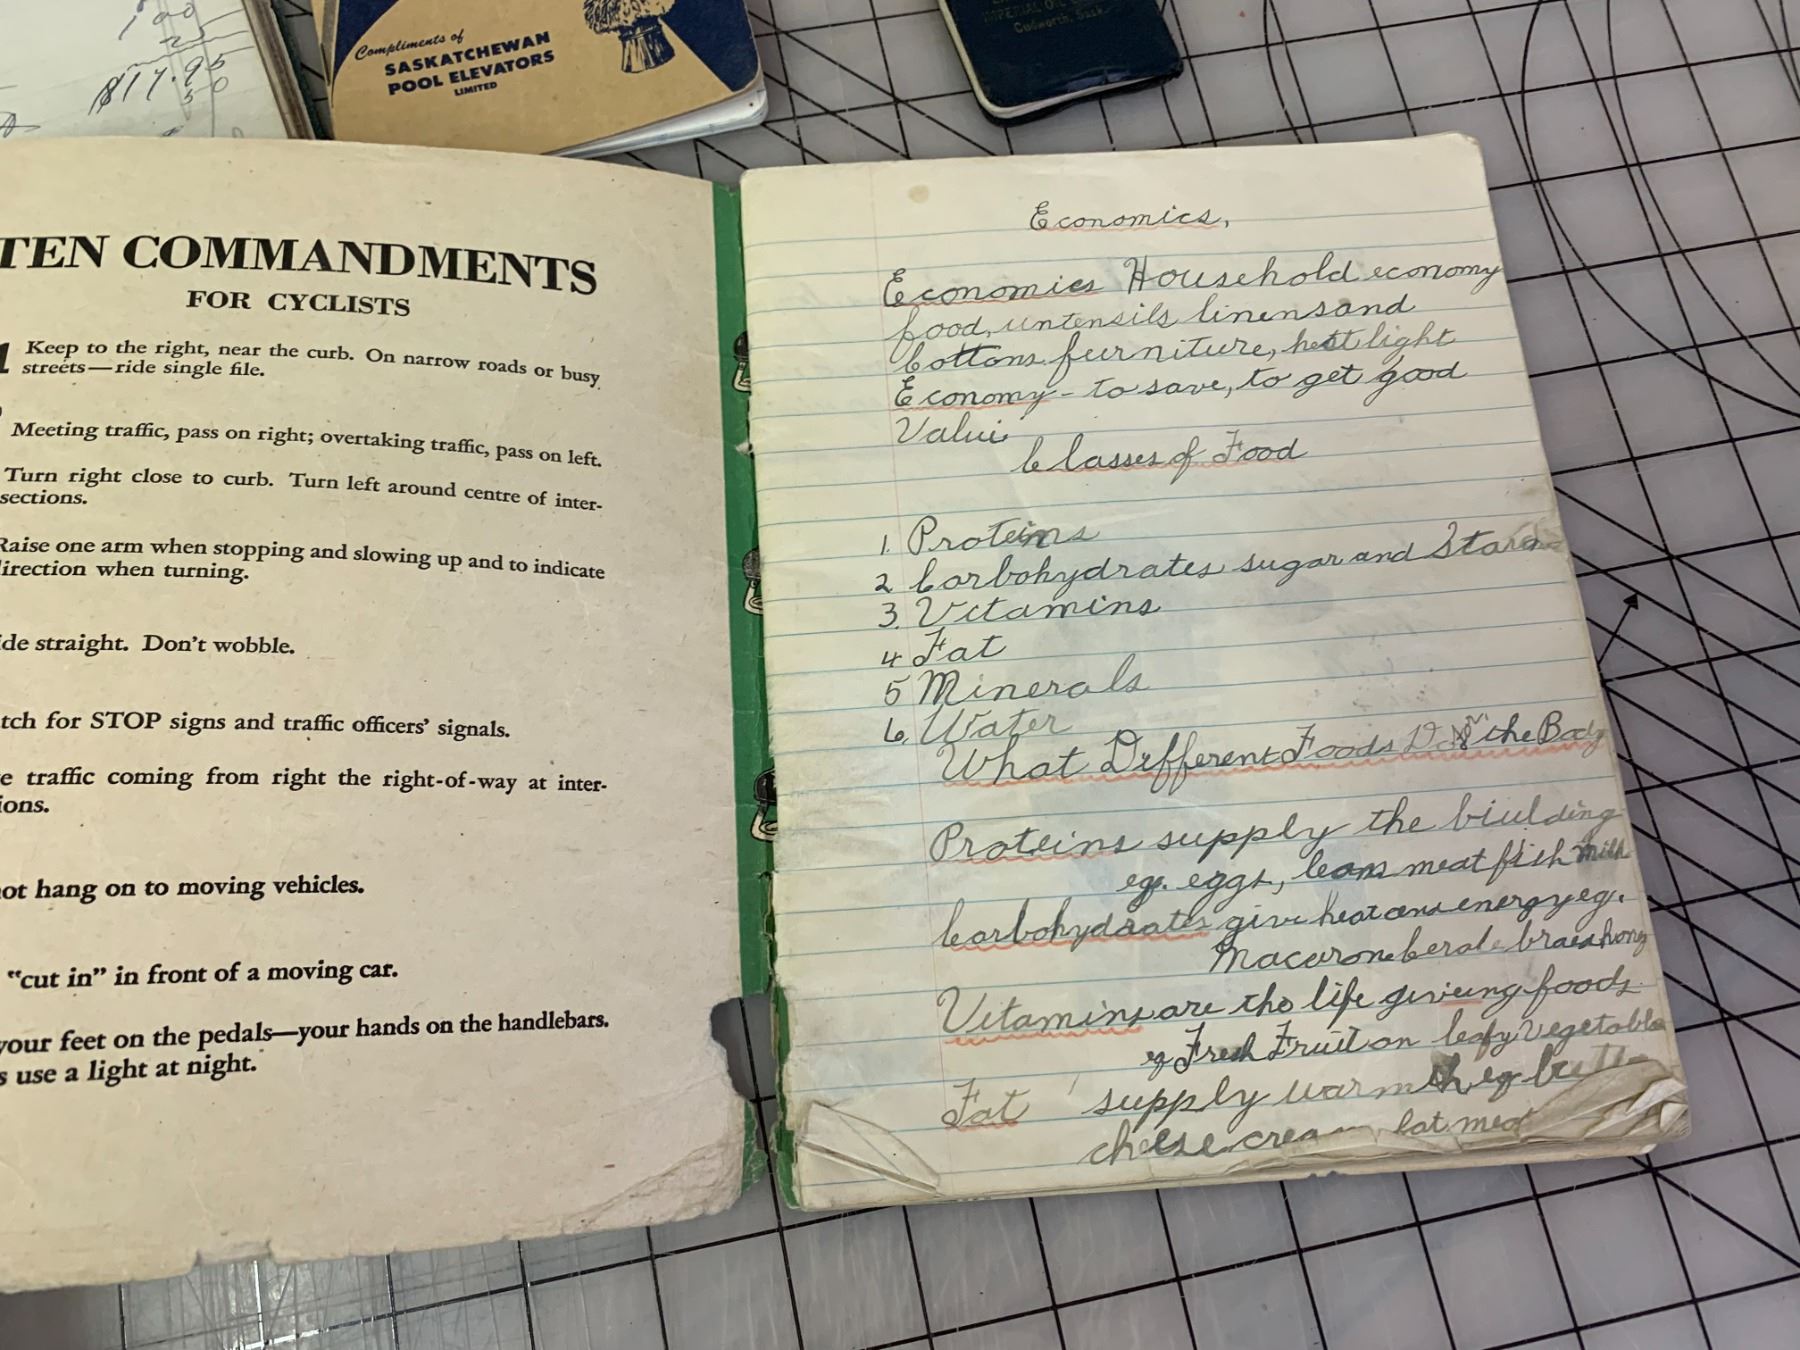 100
25
$17.95
50
Compliments of
SASKATCHEWAN
POOL ELEVATORS
LIMITED
IMPERIAL OIL
Cudworth, Sask.
TEN COMMANDMENTS
FOR CYCLISTS
1 Keep to the right, near the curb. On narrow roads or busy
streets—ride single file.
Meeting traffic, pass on right; overtaking traffic, pass on left.
Turn right close to curb. Turn left around centre of inter-
sections.
Raise one arm when stopping and slowing up and to indicate
direction when turning.
ide straight. Don't wobble.
tch for STOP signs and traffic officers' signals.
e traffic coming from right the right-of-way at inter-
ions.
ot hang on to moving vehicles.
"cut in" in front of a moving car.
your feet on the pedals—your hands on the handlebars.
s use a light at night.
Economics,
Economics Household economy
food, untensils linensand
cottons furniture, heat light
Economy - to save, to get good
Value
Classes of Food
1. Proteins
2 Carbohydrates sugar and Starch
3. Vitamins
4 Fat
5 Minerals
6. Water
What Different Foods Do the Body
Proteins supply the biulding
eg. eggs, lean meat fish milk
Carbohydrates give heat and energy eg.
Macarone honey
Vitamins are the life giveing foods
eg Fresh Fruit on leafy vegetable
Fat supply warmth eg butte
cheese cream fat meat